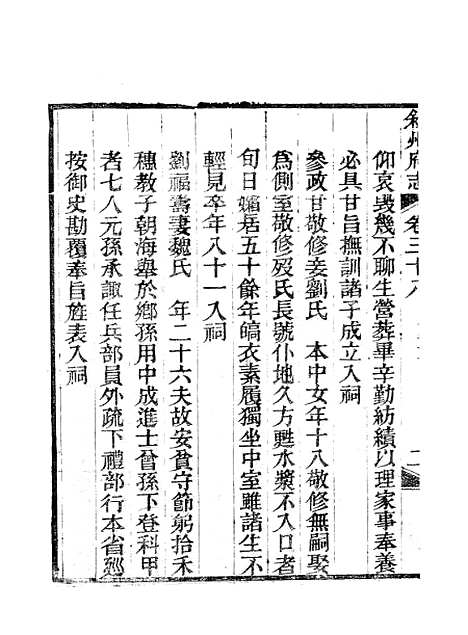 叙州府志 卷三十八 二
仰哀毀幾不聊生營葬畢辛勤紡績以理家事奉養
必具甘旨撫訓諸子成立入祠
參政甘敬修妾劉氏 本中女年十八敬修無嗣娶
爲側室敬修歿氏長號仆地久方甦水漿不入口者
旬日孀居五十餘年皜衣素履獨坐中室雖諸生不
輕見卒年八十一入祠
劉福壽妻魏氏 年二十六夫故安貧守節躬拾禾
穗教子朝海舉於鄉孫用中成進士曾孫下登科甲
者七八元孫承諏任兵部員外疏下禮部行本省廵
按御史勘覆奉旨旌表入祠